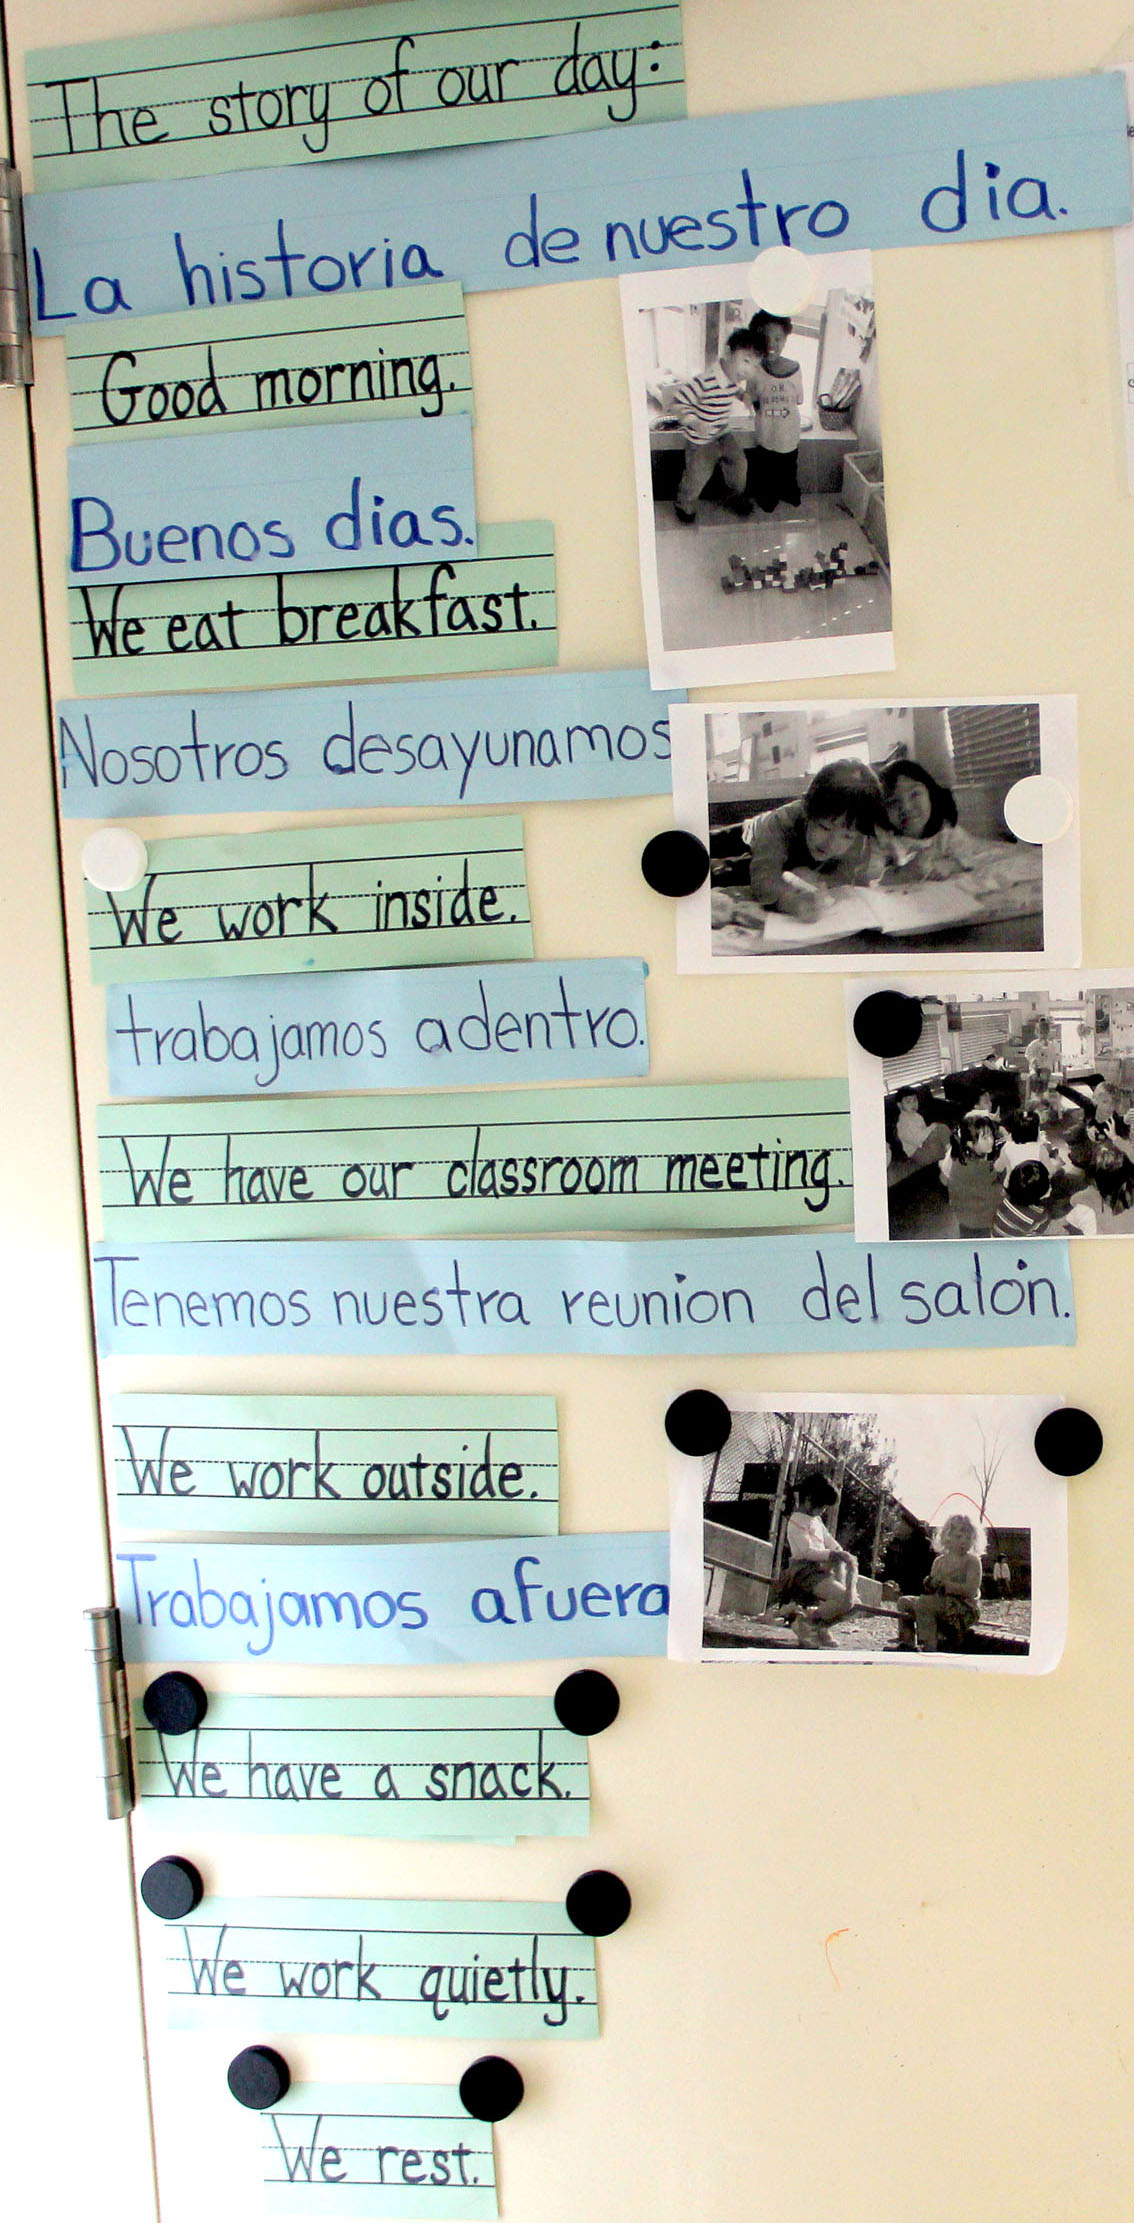 The story of our day:
La historia de nuestro dia.
Good morning.
Buenos dias.
We eat breakfast.
Nosotros desayunamos
We work inside.
trabajamos adentro.
We have our classroom meeting.
Tenemos nuestra reunion del salón.
We work outside.
Trabajamos afuera
We have a snack.
We work quietly.
We rest.